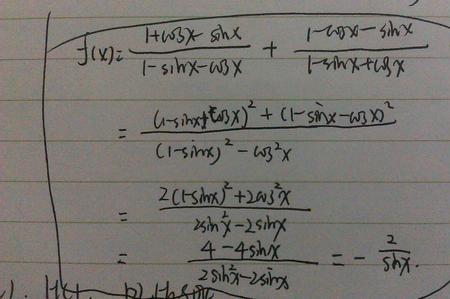 f(x)= (1+cosx-sinx)/(1-sinx-cosx) + (1-cosx-sinx)/(1-sinx+cosx)
= ((1-sinx+cosx)²+(1-sinx-cosx)²)/((1-sinx)²-cos²x)
= (2(1-sinx)²+2cos²x)/(2sin²x-2sinx)
= (4-4sinx)/(2sin²x-2sinx) = - 2/sinx.